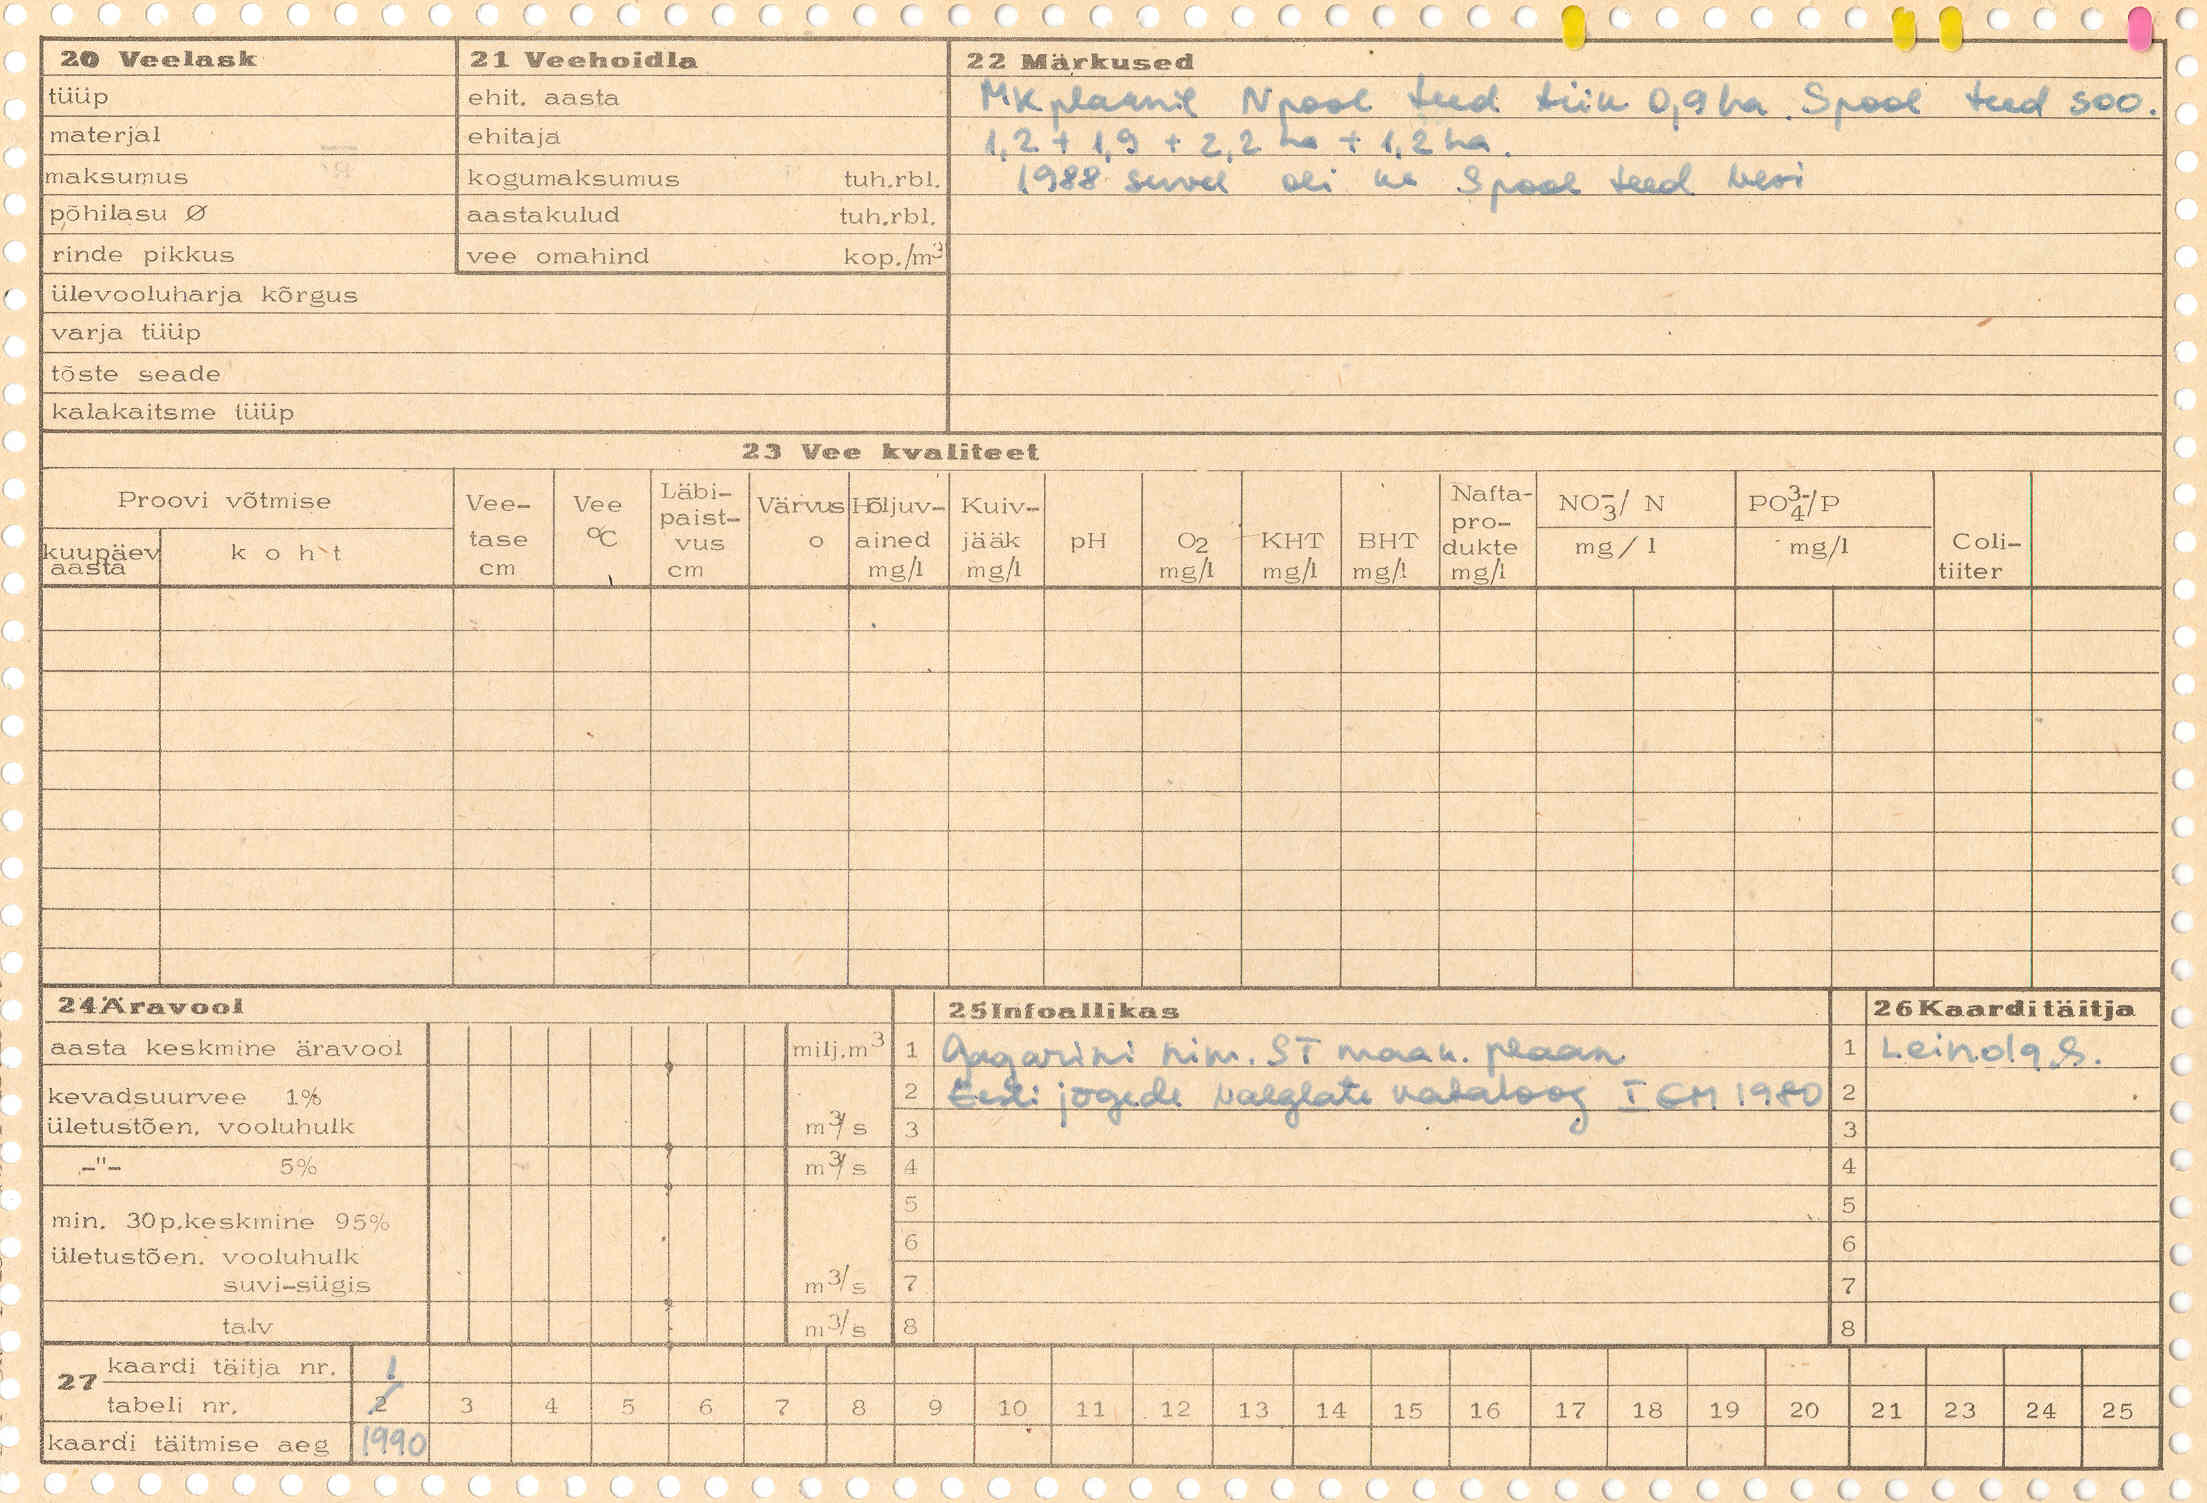 20 Veelask
tüüp
materjal
maksumus
põhilasu Ø
rinde pikkus
ülevooluharja kõrgus
varja tüüp
tõste seade
kalakaitsme tüüp
21 Veehoidla
ehit. aasta
ehitaja
kogumaksumus tuh.rbl.
aastakulud tuh.rbl.
vee omahind kop./m³
22 Märkused
MK plaanil N pool teed tiik 0,9 ha. S pool teed soo.
1,2 + 1,9 + 2,2 ha + 1,2 ha.
1988 suvel oli ka S pool teed vesi
23 Vee kvaliteet
Proovi võtmise
kuupäev
aasta
koht
Vee-
tase
cm
Vee
°C
Läbi-
paist-
vus
cm
Värvus
o
Hõljuv-
ained
mg/l
Kuiv-
jääk
mg/l
pH
O2
mg/l
KHT
mg/l
BHT
mg/l
Nafta-
pro-
dukte
mg/l
NO₃⁻/ N
mg/l
PO₄³⁻/P
mg/l
Coli-
tiiter
24 Äravool
aasta keskmine äravool milj.m³
kevadsuurvee 1%
ületustõen. vooluhulk m³/s
-"- 5% m³/s
min. 30p.keskmine 95%
ületustõen. vooluhulk
suvi-sügis m³/s
talv m³/s
25 Infoallikas
1 Gagarini nim. ST maak. plaan
2 Eesti jõgede valglate kataloog I EM 1980
3
4
5
6
7
8
26 Kaarditäitja
1 Leinola, S.
2
3
4
5
6
7
8
27 kaardi täitja nr. 1
tabeli nr. 2 3 4 5 6 7 8 9 10 11 12 13 14 15 16 17 18 19 20 21 23 24 25
kaardi täitmise aeg 1990